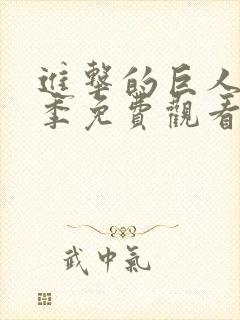 進擊的巨人
季免費觀看
武中氣